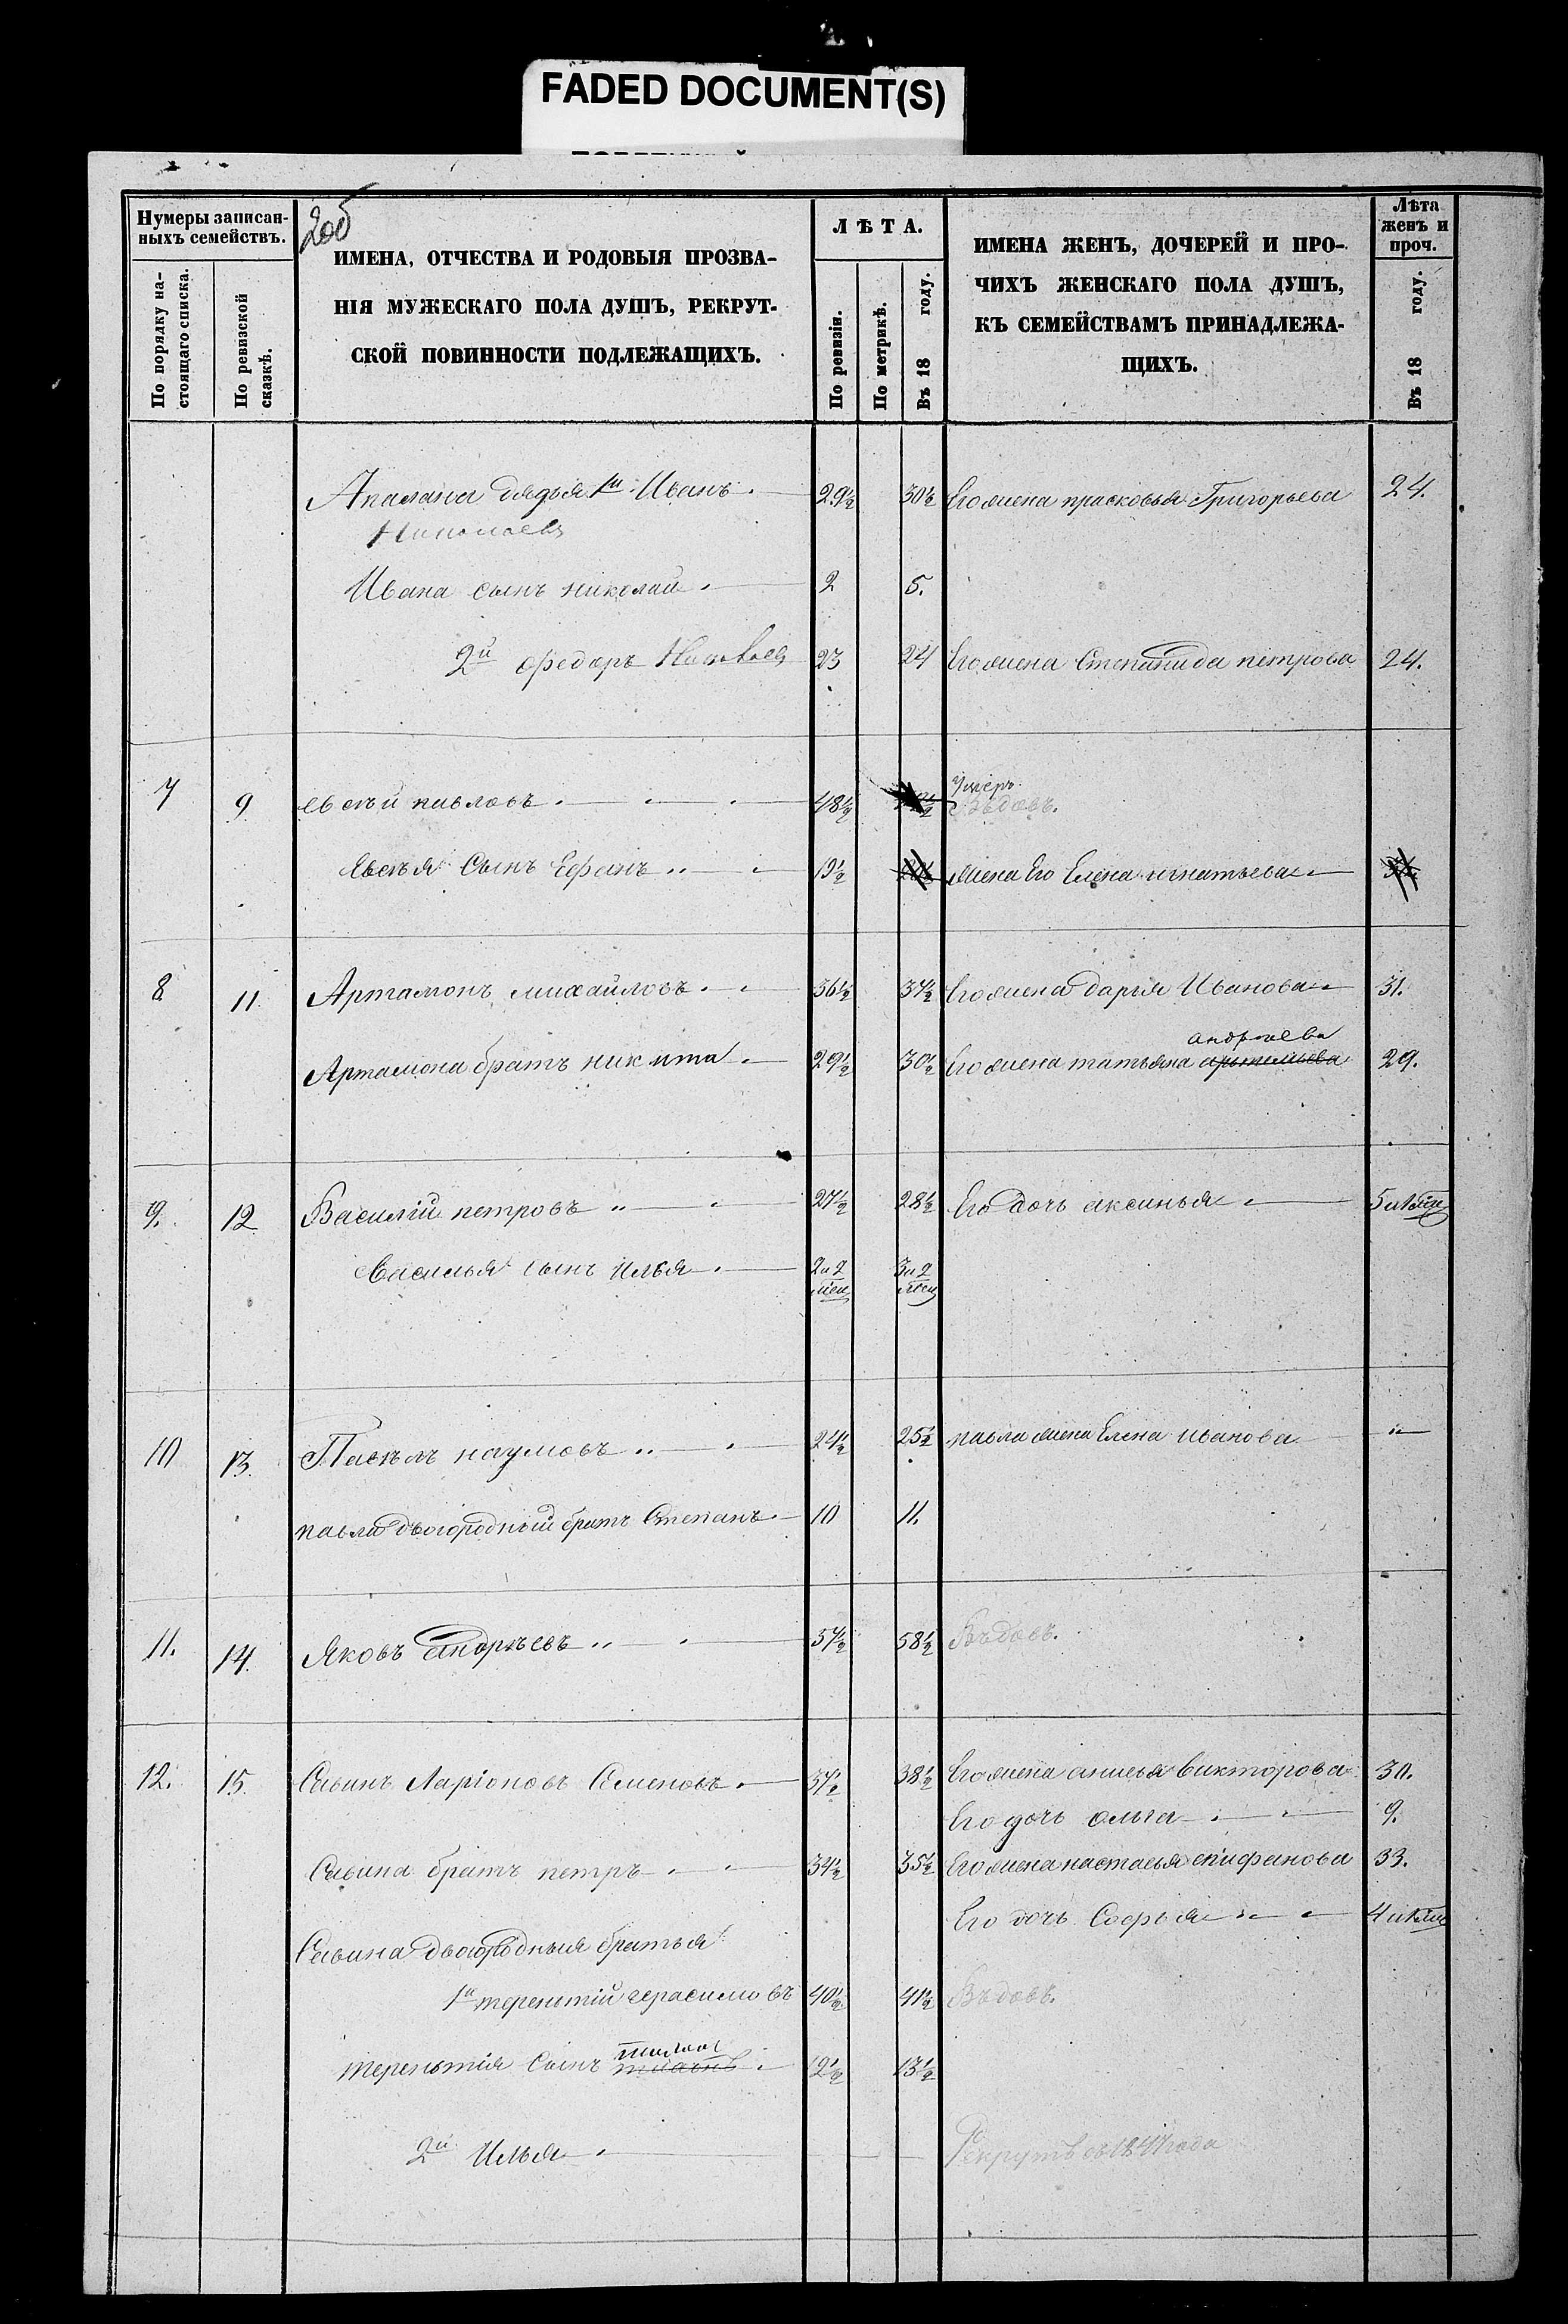 FADED DOCUMENT(S)
205
Нумеры записан-
ныхъ семействъ.
По порядку на-
стоящаго списка.
По ревизской
сказкѣ.
ИМЕНА, ОТЧЕСТВА И РОДОВЫЯ ПРОЗВА-
НІЯ МУЖЕСКАГО ПОЛА ДУШЪ, РЕКРУТ-
СКОЙ ПОВИННОСТИ ПОДЛЕЖАЩИХЪ.
ЛѢТА.
По ревизіи.
По метрикѣ.
Въ 18 году.
ИМЕНА ЖЕНЪ, ДОЧЕРЕЙ И ПРО-
ЧИХЪ ЖЕНСКАГО ПОЛА ДУШЪ,
КЪ СЕМЕЙСТВАМЪ ПРИНАДЛЕЖА-
ЩИХЪ.
Лѣта
женъ и
проч.
Въ 18 году.
дядья 1й Иванъ. 29½ 30½ Его жена прасковья Григорьева 24.
Николаевъ
Ивана сынъ николай. 2 5.
2й федоръ 23 24 Его жена Степанида петрова 24.
7 9 евсѣй павловъ. 48½ Умеръ
Вдовъ.
Евсѣя Сынъ 19½ жена Его Елена игнатьева
8 11. Артамонъ михайловъ. 36½ 37½ Его жена дарья Иванова 31.
андреева
Артамона братъ никита 29½ 30½ Его жена татьяна 29.
9. 12 Василій петровъ 27½ 28½ Его дочь аксинья
Василья сынъ илья 2 и 2 мец 3 и 2 мец
10 13. наумовъ 24½ 25½ павла жена Елена иванова "
павла двоюродный братъ Степанъ 10 11.
11. 14. Яковъ андреевъ 57½ 58½ Въдовъ.
12. 15. Савинъ Ларіоновъ Семеновъ. 37½ 38½ Его жена анисья викторова 30.
Его дочь ольга 9.
Савина братъ петръ 34½ 35½ Его жена настасья епифанова 33.
Его дочь Софья
Савина двоюродныя братья
1й терентій герасимовъ 40½ 41½ Въдовъ.
терентія Сынъ 12½ 13½
2й Илья Рекрутъ съ 1847 года